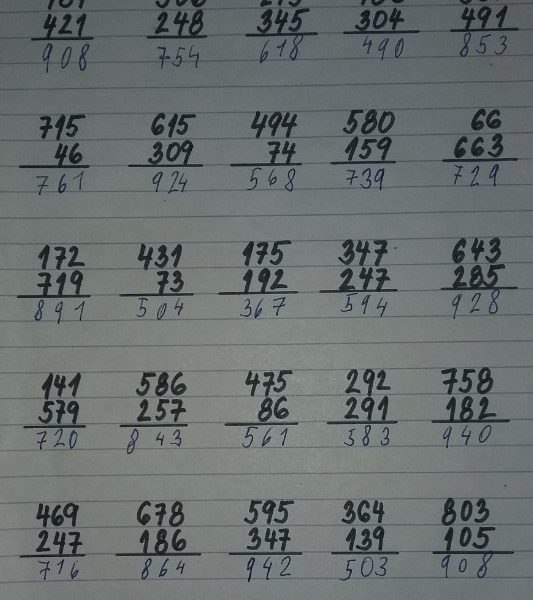 421 248 345 304 491
908 754 618 490 853
715 615 494 580 66
46 309 74 159 663
761 924 568 739 729
172 431 175 347 643
719 73 192 247 285
891 504 367 594 928
141 586 475 292 758
579 257 86 291 182
720 843 561 583 940
469 678 595 364 803
247 186 347 139 105
716 864 942 503 908